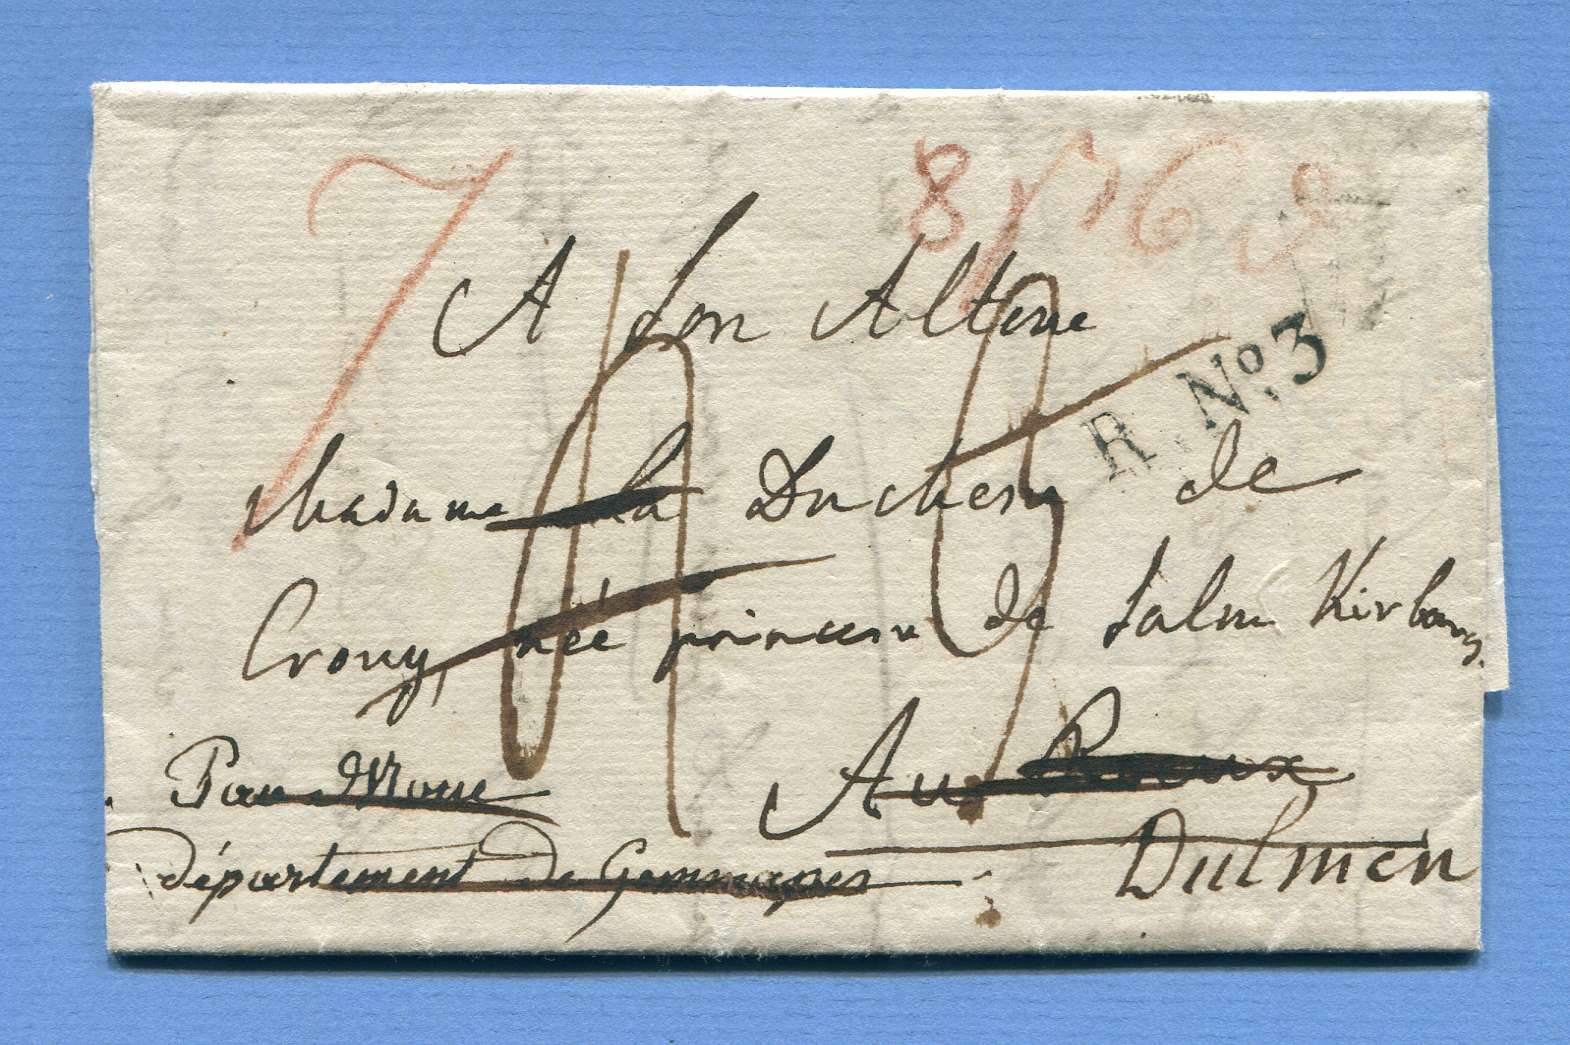 7
8
A Son Altesse
R. No. 3
Madame la Duchesse de
Crouy, née princesse de Salm Kirbourg
Au Roeux
Par Mons
département de Gemmapes
Dulmen